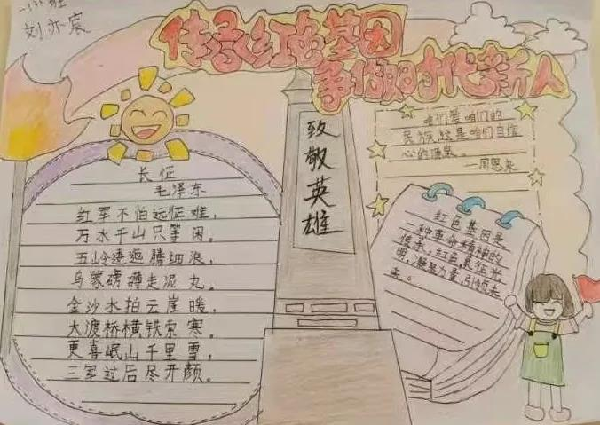 刘亦宸
传承红色基因
争做新时代新人
长征
毛泽东
红军不怕远征难,
万水千山只等闲。
五岭逶迤腾细浪,
乌蒙磅礴走泥丸。
金沙水拍云崖暖,
大渡桥横铁索寒。
更喜岷山千里雪,
三军过后尽开颜。
致敬英雄
咱们爱咱们的
民族 这是咱们自信
心的源泉。
—周恩来
红色基因是
种革命精神的
传承,红色象征光
明,凝聚力量,引领未
来。